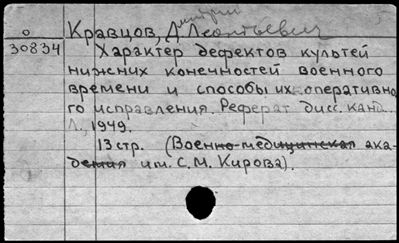 Дмитрий
о Кравцов, Д. Леонтьевич
30834 Характер дефектов культей
нижних конечностей военного
времени и способы их оперативно
го исправления. Реферат дисс. канд.
Л., 1949.
13 стр. (Военно-медицинская ака-
демия им. С. М. Кирова).